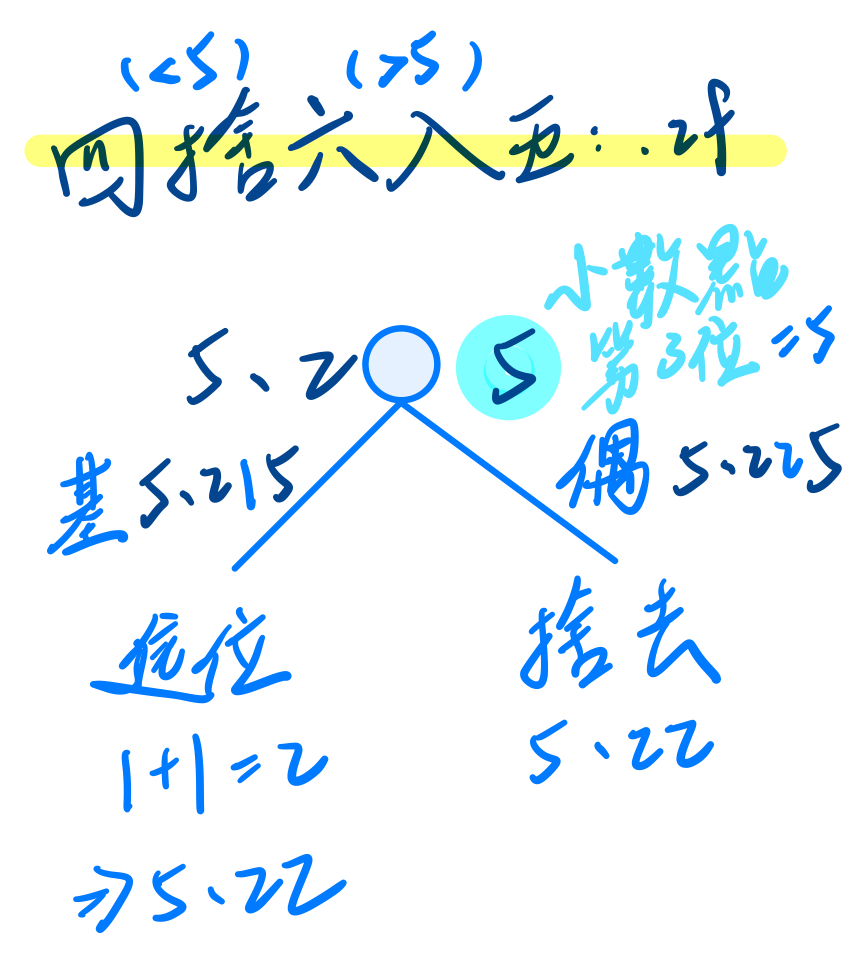 (<5) (>5)
四捨六入五：.2f
小數點
第3位=5
5、2 5
基 5、215
偶 5、225
進位
捨去
1+1=2
5、22
⇒5、22